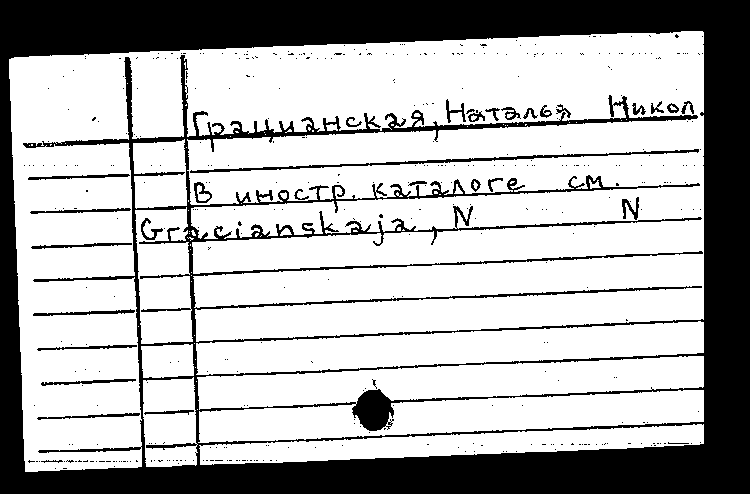 Грацианская, Наталья Никол.
В иностр. каталоге см.
Gracianskaja, N N